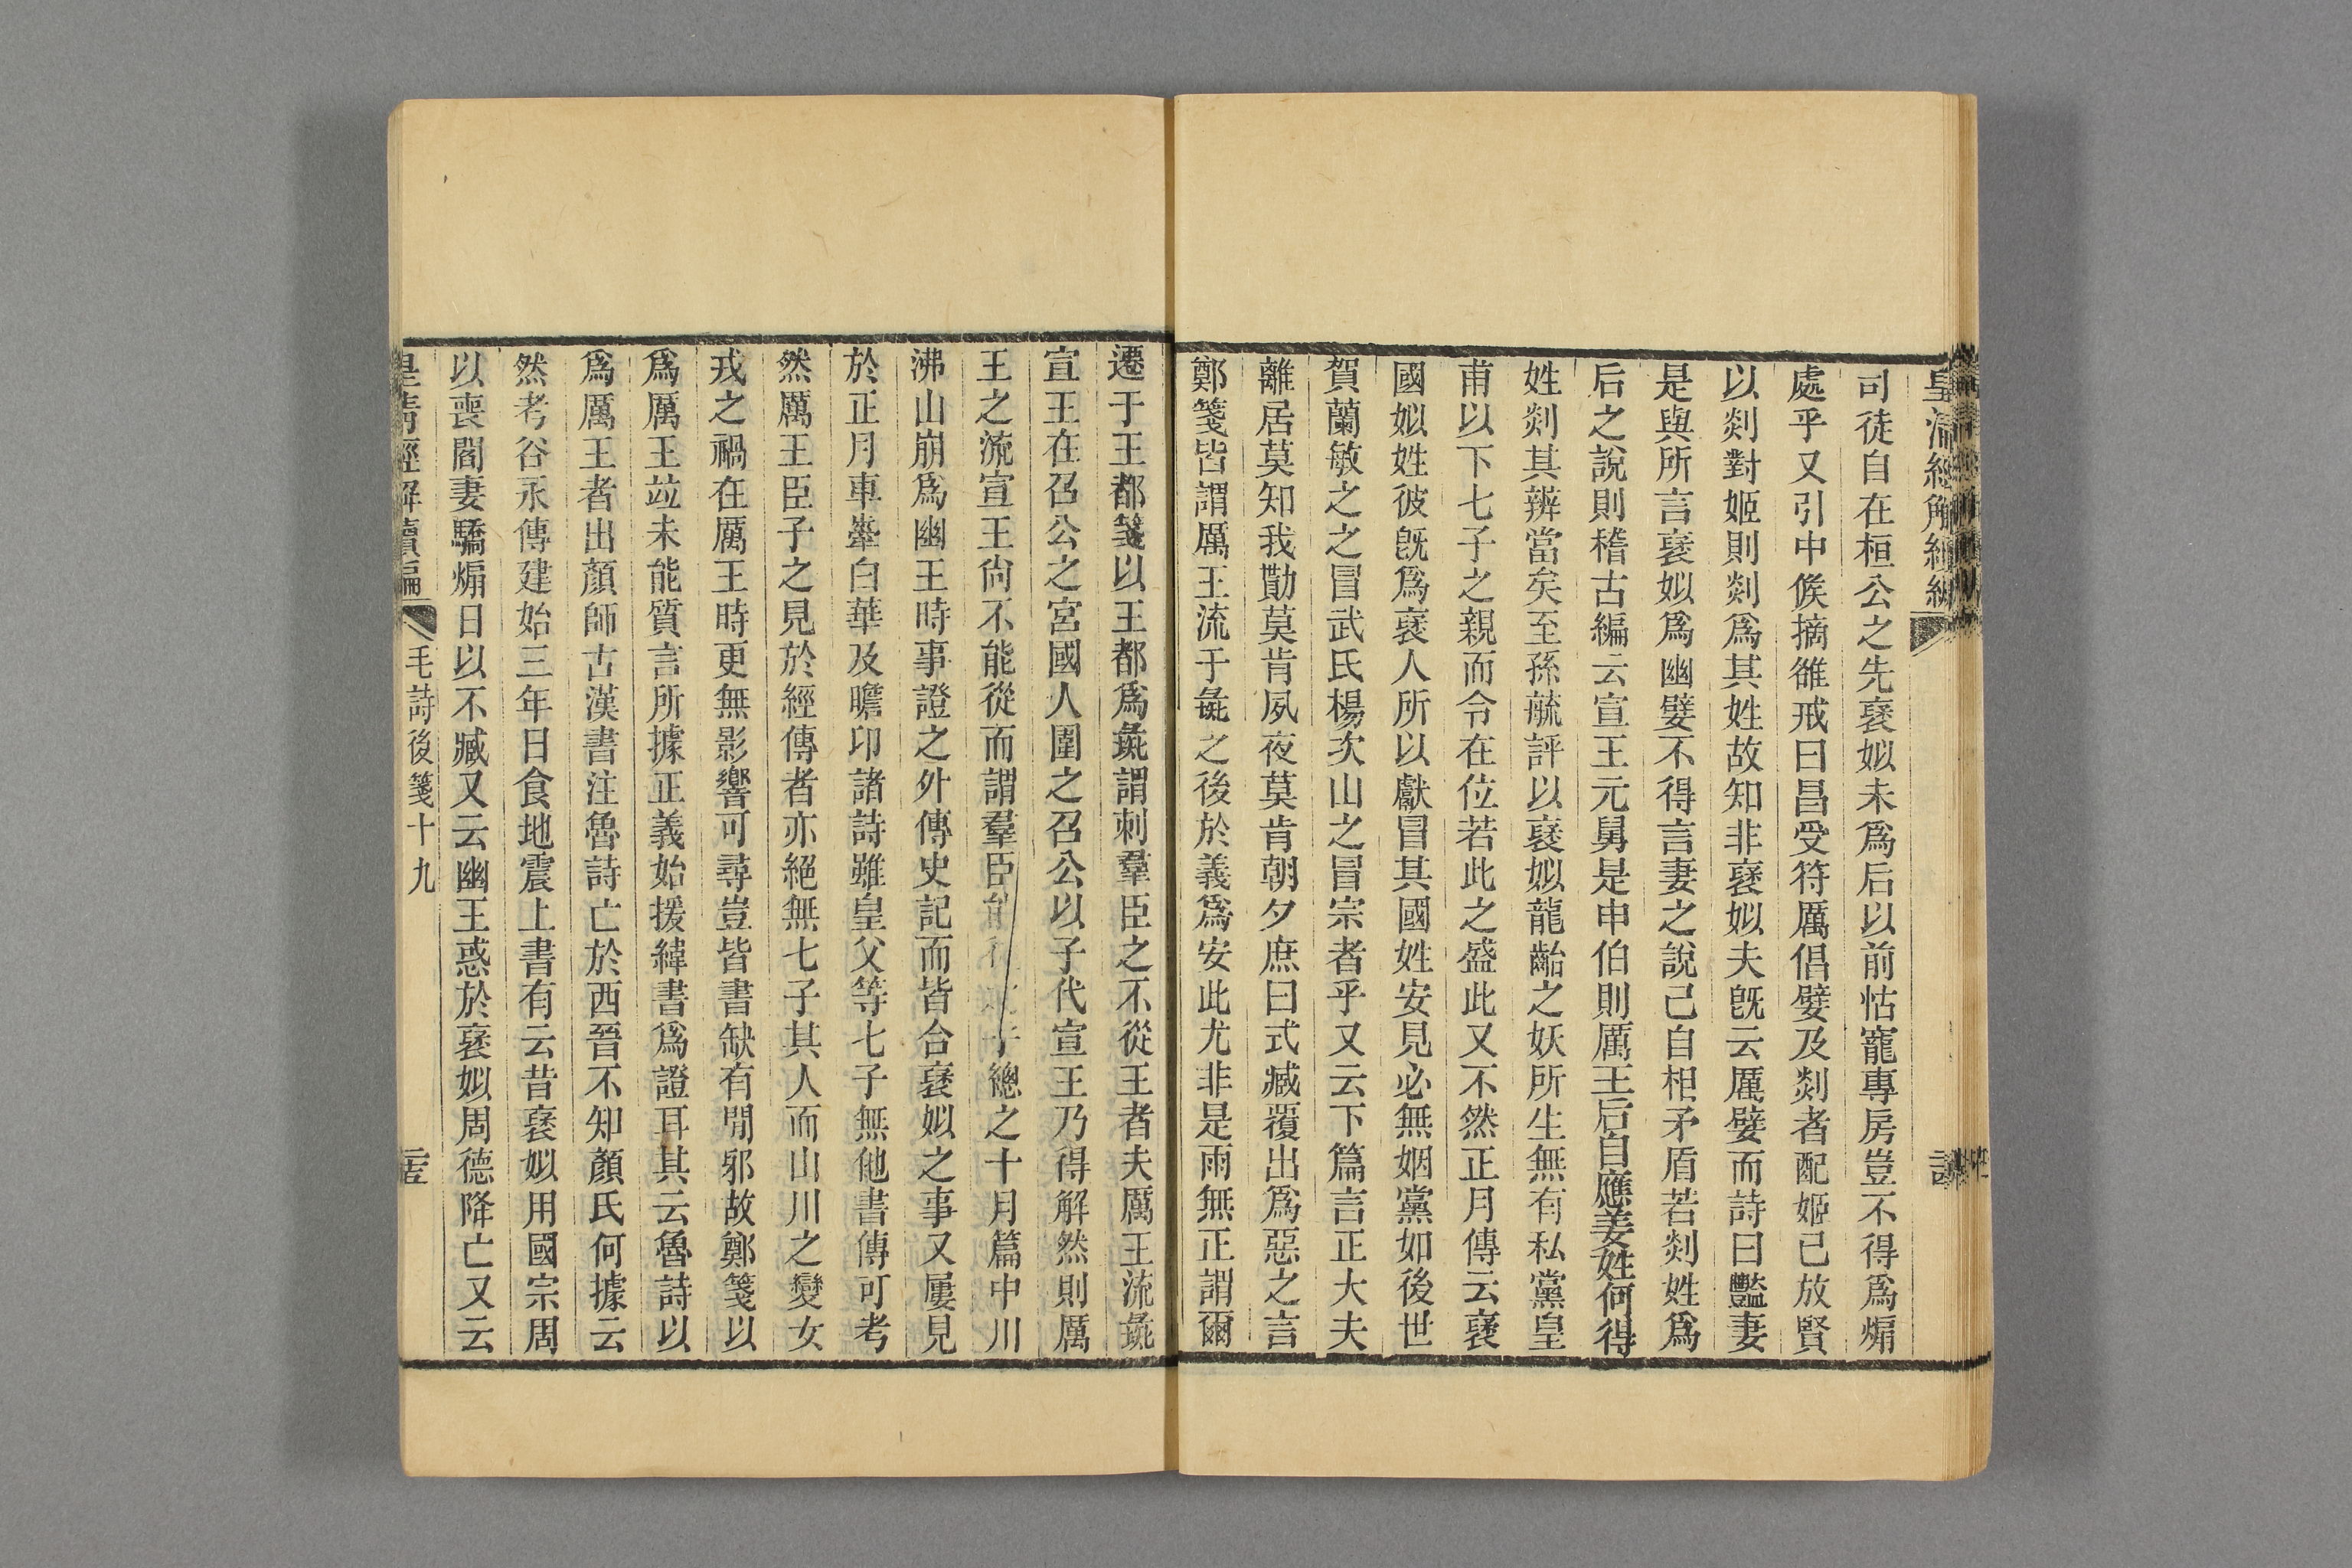 皇清經解續編
司徒自在桓公之先襃姒未爲后以前怙寵專房豈不得爲煽
處乎又引中候摘雒戒曰昌受符厲倡嬖及剡者配姬已放賢
以剡對姬則剡爲其姓故知非襃姒夫旣云厲嬖而詩曰豔妻
是與所言襃姒爲幽嬖不得言妻之說己自相矛盾若剡姓爲
后之說則稽古編云宣王元舅是申伯則厲王后自應姜姓何得
姓剡其辨當矣至孫毓評以襃姒龍齝之妖所生無有私黨皇
甫以下七子之親而令在位若此之盛此又不然正月傳云襃
國姒姓彼旣爲襃人所以獻冒其國姓安見必無姻黨如後世
賀蘭敏之之冒武氏楊次山之冒宗者乎又云下篇言正大夫
離居莫知我勩莫肯夙夜莫肯朝夕庶曰式臧覆出爲惡之言
鄭箋皆謂厲王流于彘之後於義爲安此尤非是雨無正謂爾
遷于王都箋以王都爲彘謂刺羣臣之不從王者夫厲王流彘
宣王在召公之宮國人圍之召公以子代宣王乃得解然則厲
王之流宣王尙不能從而謂羣臣總之十月篇中川
沸山崩爲幽王時事證之外傳史記而皆合襃姒之事又屢見
於正月車舝白華及瞻卬諸詩雖皇父等七子無他書傳可考
然厲王臣子之見於經傳者亦絕無七子其人而山川之變女
戎之禍在厲王時更無影響可尋豈皆書缺有閒邪故鄭箋以
爲厲王竝未能質言所據正義始援緯書爲證耳其云魯詩以
爲厲王者出顏師古漢書注魯詩亡於西晉不知顏氏何據云
然考谷永傳建始三年日食地震上書有云昔襃姒用國宗周
以喪閻妻驕煽日以不臧又云幽王惑於襃姒周德降亡又云
皇清經解續編 毛詩後箋十九